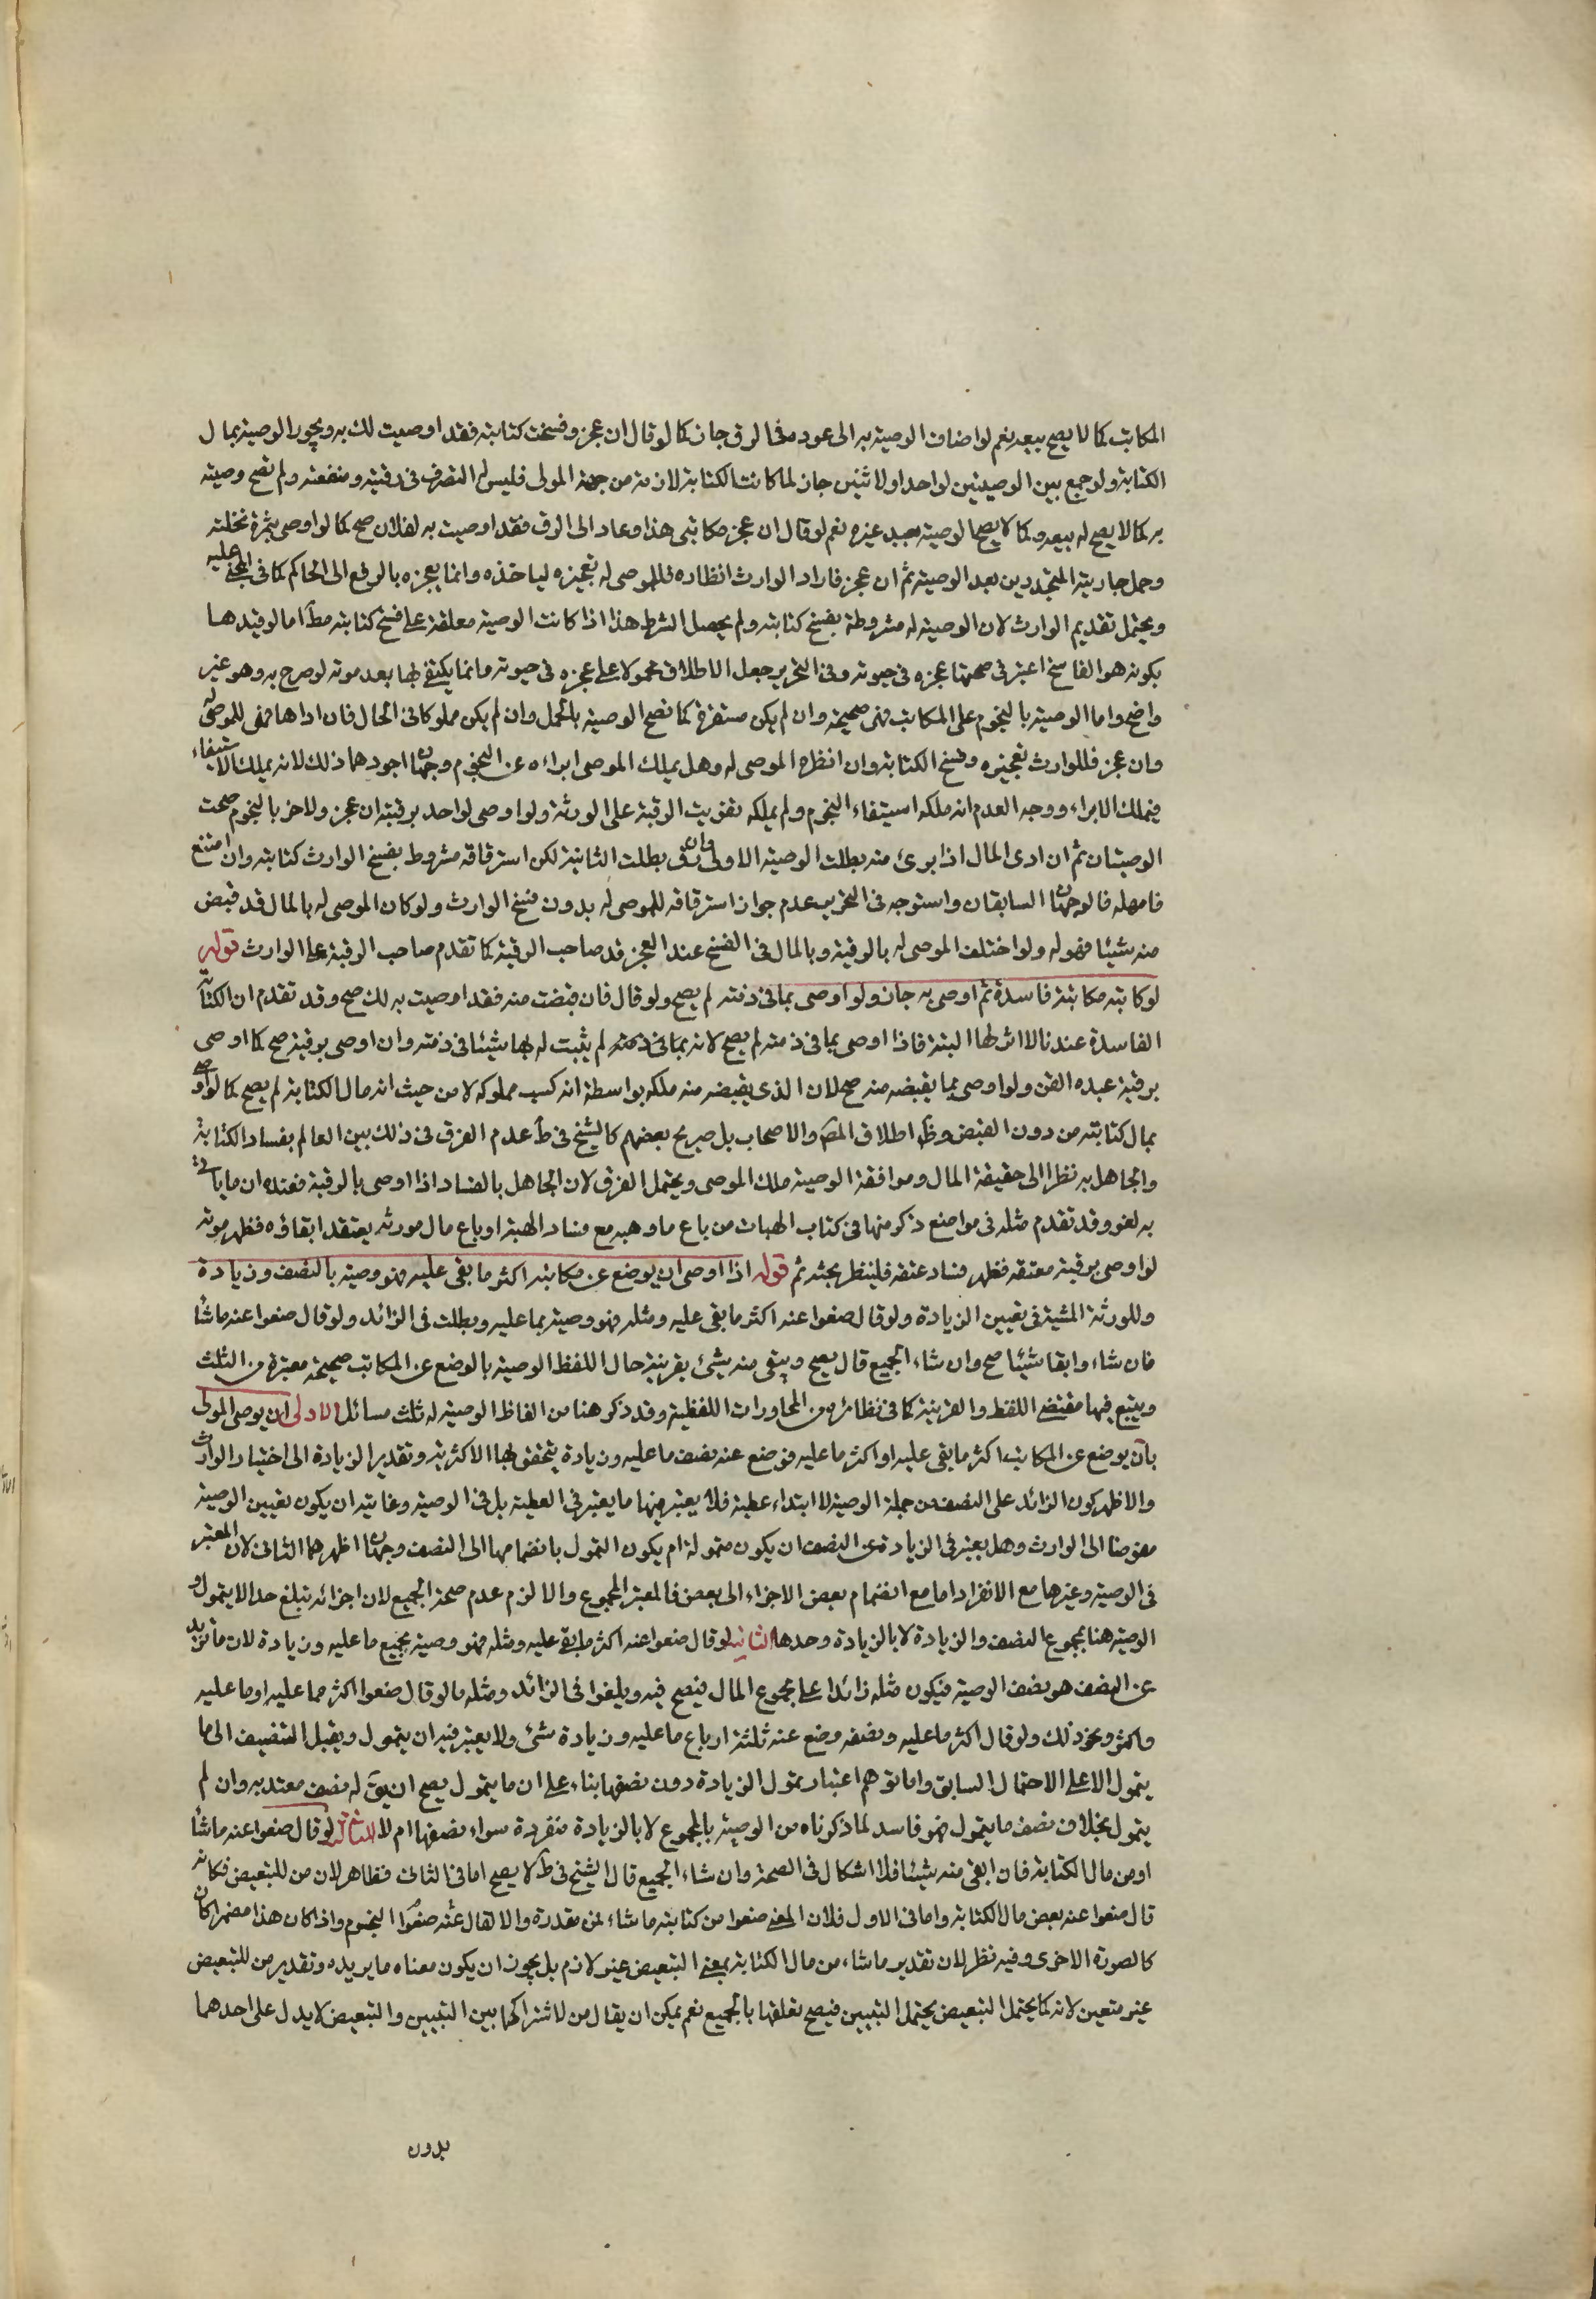 المكاتب كما لا يصح بيعه نعم لو اضاف الوصية به الى عوده في الرق جاز كما لو قال ان عجز وفسخت كتابته فقد اوصيت لك به ويجوز الوصية بمال
الكتابة ولو جمع بين الوصيتين لواحد او لاثنين جاز لما كانت الكتابة لازمة من جهة المولى فليس له التصرف في رقبته ومنفعته ولم تصح وصيته
به كما لا يصح له بيعه وكما لا يصح الوصية بعبد غيره نعم لو قال ان عجز مكاتبى هذا وعاد الى الرق فقد اوصيت به لفلان صح كما لو اوصى بثمرة نخلته
وحمل جاريته المتجددين بعد الوصية ثم ان عجز فاراد الوارث انظاره فللموصى له تعجيزه لياخذه وانما يعجزه بالرفع الى الحاكم كما في المجنى عليه
ويحتمل تقديم الوارث لان الوصية له مشروطة بفسخ كتابته ولم يحصل الشرط هذا اذا كانت الوصية معلقة على فسخ كتابته مط اما لو قيدها
بكونه هو الفاسخ اعتبر في صحتها عجزه في حيوته وفى التحرير جعل الاطلاق محمولا على عجزه في حيوته وانما يكتفى بها بعد موته لو صرح به وهو غير
واضح واما الوصية بالنجوم على المكاتب فهى صحيحة وان لم يكن مستقرة كما تصح الوصية بالحمل وان لم يكن مملوكا فى الحال فان اداها فهى للموصى له
وان عجز فللوارث تعجيزه وفسخ الكتابة وان انظره الموصى له وهل يملك الموصى ابراءه عن النجوم وجهان اجودهما ذلك لانه يملك الاستيفاء
فيملك الابراء ووجه العدم انه ملكه استيفاء النجوم ولم يملكه تفويت الرقبة على الورثة ولو اوصى لواحد برقبته ان عجز ولاخر بالنجوم صحت
الوصيتان ثم ان ادى المال اذا برئ منه بطلت الوصية الاولى وان رق بطلت الثانية لكن استرقاقه مشروط بفسخ الوارث كتابته وان امتنع
فامهله فالوجهان السابقان واستوجه في التحرير عدم جواز استرقاقه للموصى له بدون فسخ الوارث ولو كان الموصى له بالمال قد قبض
منه شيئا فهو له ولو اختلف الموصى له بالرقبة وبالمال في الفسخ عند العجز قدم صاحب الرقبة كما تقدم صاحب الرقبة على الوارث قوله
لو كاتبه مكاتبة فاسدة ثم اوصى به جاز ولو اوصى بما في ذمته لم يصح ولو قال فان قبضت منه فقد اوصيت به لك صح وقد تقدم ان الكتابة
الفاسدة عندنا لا اثر لها البتة فاذا اوصى بما في ذمته لم يصح لانه بما في ذمته لم يثبت له بها شيئا في ذمته وان اوصى برقبته صح كما اوصى
برقبة عبده القن ولو اوصى بما يقبضه منه صح لان الذى يقبضه منه ملكه بواسطة انه كسب مملوكه لا من حيث انه مال الكتابة لم يصح كما لو اوصى
بمال كتابته من دون القبض وظ اطلاق المص والاصحاب بل صريح بعضهم كالشيخ في ط عدم الفرق في ذلك بين العالم بفساد الكتابة
والجاهل به نظرا الى حقيقة المال وموافقة الوصية ملك الموصى ويحتمل الفرق لان الجاهل بالفساد اذا اوصى بالرقبة فعنده ان ما ياتى
به لغو وقد تقدم مثله في مواضع ذكر منها في كتاب الهبات من باع ما وهبه مع فساد الهبة او باع مال مورثه يعتقد ابقاؤه فظهر موته
لو اوصى برقبة معتقه فظهر فساد عتقه فلينظر بحثه ثم قوله اذا اوصى ان يوضع عن مكاتبه اكثر ما بقى عليه فهو وصية بالنصف وزيادة
وللورثة المشية في تعيين الزيادة ولو قال ضعوا عنه اكثر ما بقى عليه ومثله فهو وصية بما عليه وبطلت في الزائد ولو قال ضعوا عنه ما شاء
فان شاء وابقا شيئا صح وان شاء الجميع قال يصح ويبقى منه شيئ بقرينة حال اللفظ الوصية بالوضع عن المكاتب صحيحة معتبرة من الثلث
ويتبع فيها مقتضى اللفظ والقرينة كما في نظائره من المحاورات اللفظية وقد ذكر هنا من الفاظ الوصية له ثلث مسائل الاولى ان يوصى المولى
بان يوضع عن المكاتب اكثر ما بقى عليه او اكثر ما عليه فوضع عنه نصف ما عليه وزيادة يتحقق بها الاكثرية وتقدير الزيادة الى اختيار الوارث
والاظهر كون الزائد على النصف من جملة الوصية لا ابتداء عطية فلا يعتبر فيها ما يعتبر في العطية بل في الوصية وغايته ان يكون تعيين الوصية
مفوضا الى الوارث وهل يعتبر في الزيادة عن النصف ان يكون متمولة ام يكون التمول بانضمامها الى النصف وجهان اظهرهما الثانى لان المعتبر
في الوصية وغيرها مع الانفراد اما مع انضمام بعض الاجزاء الى بعض فالمعتبر المجموع والا لزم عدم صحة الجميع لان اجزائه تبلغ حد الا يتمول و
الوصية هنا بمجموع النصف والزيادة لا بالزيادة وحدها الثانية لو قال ضعوا عنه اكثر ما بقى عليه ومثله فهو وصية بجميع ما عليه وزيادة لان ما يزيد
عن النصف هو نصف الوصية فيكون مثله زائدا على مجموع المال فيصح فيه ويلغوا في الزائد ومثله ما لو قال ضعوا اكثر مما عليه او ما عليه
واكثر ونحو ذلك ولو قال اكثر ما عليه ونصفه وضع عنه ثلثة ارباع ما عليه وزيادة شئ ولا يعتبر فيه ان يتمول ويقبل التنصيف الى ما
يتمول الا على الاحتمال السابق واما توهم اعتبار تمول الزيادة دون نصفها بناء على ان ما يتمول يصح ان يق له نصف معتد به وان لم
يتمول بخلاف نصف ما يتمول فهو فاسد لما ذكرناه من الوصية بالمجموع لا بالزيادة منفردة سواء نصفها ام لا الثالثة لو قال ضعوا عنه ما شاء
او من مال الكتابة فان ابقى منه شيئا فلا اشكال في الصحة وان شاء الجميع قال الشيخ في ط لا يصح اما في الثانى فظاهر لان من للتبعيض فكانه
قال ضعوا عنه بعض مال الكتابة واما في الاول فلان المعنى ضعوا من كتابته ما شاء لمن مقدرة والا لقال عنه ضعوا النجوم واذا كان هذا مضمرا كان
كالصورة الاخرى وفيه نظر لان تقدير ما شاء من مال الكتابة بمعنى التبعيض غير لازم بل يجوز ان يكون معناه ما يريده وتقدير من للتبعيض
غير متعين لانه كما يحتمل التبعيض يحتمل التبيين فيصح تعلقها بالجميع نعم يمكن ان يقال من لاشتراكها بين التبيين والتبعيض لا يدل على احدهما
بدون